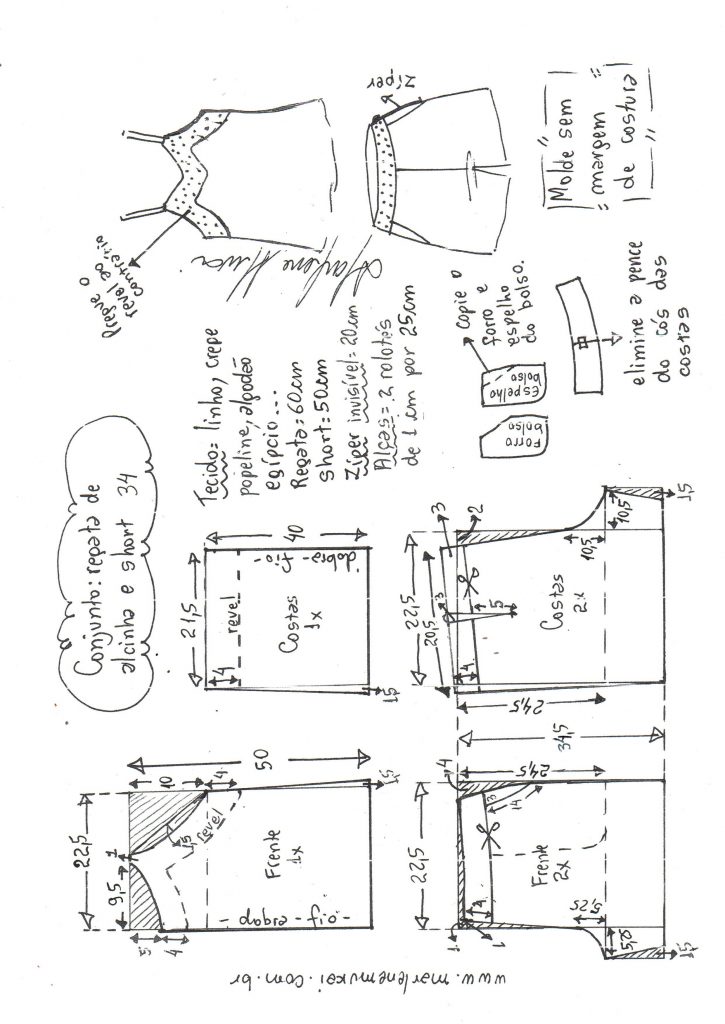 Conjunto: regata de
alcinha e short 34
Tecido: linho, crepe
popeline, algodão
egípcio...
Regata: 60cm
short: 50cm
Zíper invisível= 20cm
Alças= 2 rolotês
de 1 cm por 25cm
Pregue o
revel ao
contrário
Zíper
"Molde sem
margem
de costura"
copie o
forro e
espelho
do bolso.
Forro
bolso
Espelho
bolso
elimine a pence
do cós das
costas
22,5
9,5
1
10
4
50
1,5
revel
5
4
Frente
1x
dobra-fio
1,5
21,5
40
4
revel
Costas
1x
dobra-fio
1,5
22,5
4
3
14
24,5
34,5
4
1
1
Frente
2x
5,25
5,25
1,5
22,5
20,5
3
3
2
4
5
24,5
Costas
2x
10,5
10,5
1,5
www.marlenemukai.com.br